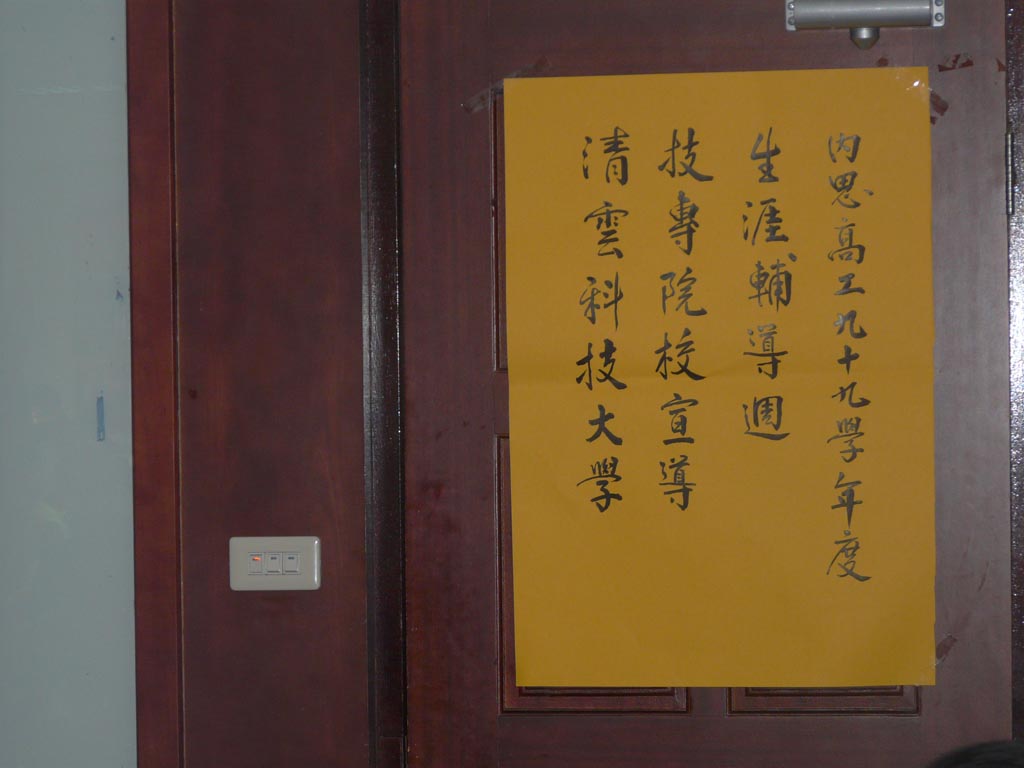 內思高工九十九學年度
生涯輔導週
技專院校宣導
清雲科技大學